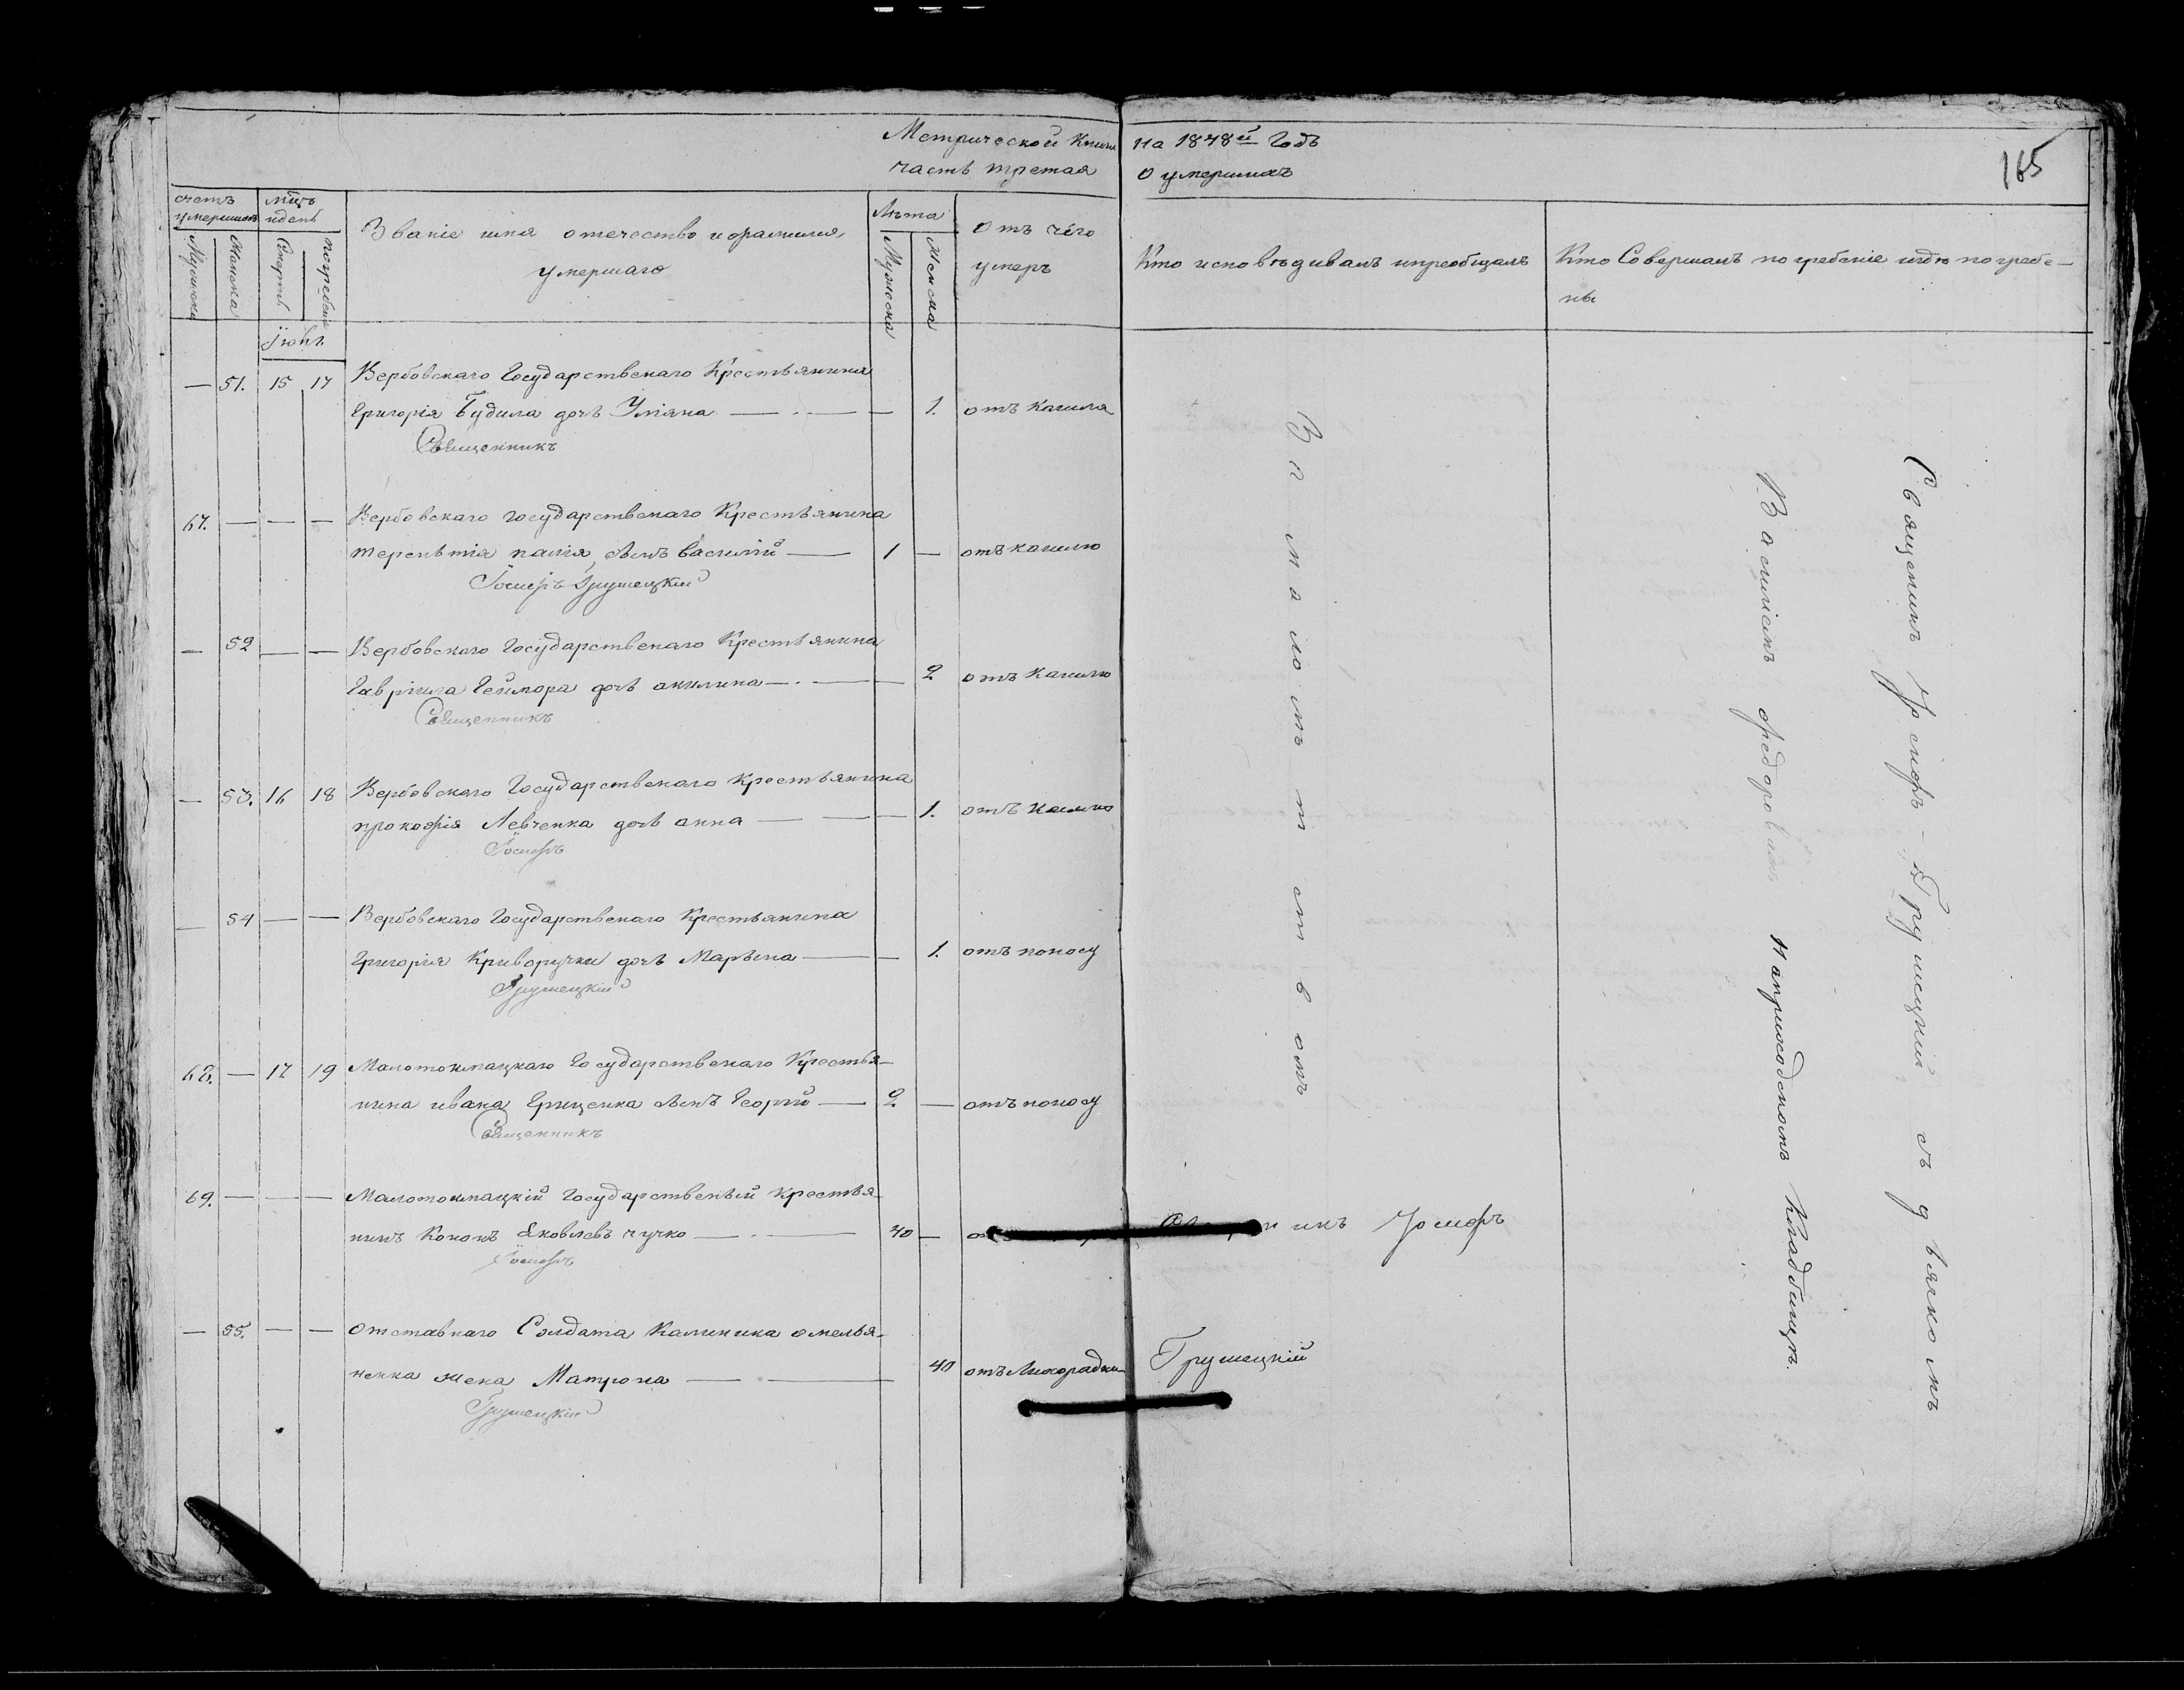 Метрической Книги на 1848й Годъ
часть третая О умершихъ
165
счетъ умершихъ
мцъ и день
Званіе имя отечество и фамилия
умершаго
Лѣта
Отъ чего
умеръ
Кто исповѣдивалъ и преобщалъ
Кто Совершалъ погребеніе и гдѣ погребе-
ны
Мужеска
Женска
Смерть
погребенія
Мужеска
Женска
Іюнь.
— 51. 15 17 Вербовскаго Государственаго Крестьянина
Григорія Будила дочь Уліяна — 1. отъ Кашля
Священникъ
67. — — — Вербовскаго государственаго Крестьянина
терентія палія, сынъ василій — 1 — отъ кашлю
Іосифъ Грушецкій
— 52 — — Вербовскаго Государственаго Крестьянина
Гавріила дочь акилина — 2 отъ Кашлю
Священникъ
— 53. 16 18 Вербовскаго Государственаго Крестьянина
прокофія Левченка дочь анна — 1. отъ Кашлю
Іосифъ
— 54 — — Вербовскаго Государственаго Крестьянина
Григорія Криворучки дочь Марьяна — 1. отъ поносу
Грушецкій
68. — 17 19 Малотокмацкаго Государственаго Крестья-
нина ивана Гриценка сынъ Георгій — 2. — отъ поносу
Священникъ
69. — — — Малотокмацкій Государственый крестья-
нинъ Кононъ Яковлевъ чучко — 40 —
Іосифъ
— 55. — — отставнаго Солдата Калиника омелья-
ненка жена Матрона — 40 отъ Лихорадки
Грушецкій
Въ малолѣтствомъ
Іосифъ
Грушецкій
Священикъ Іосифъ Грушецкій съ дьякомъ
Василіемъ Федоровымъ На приходскомъ Кладбищѣ.